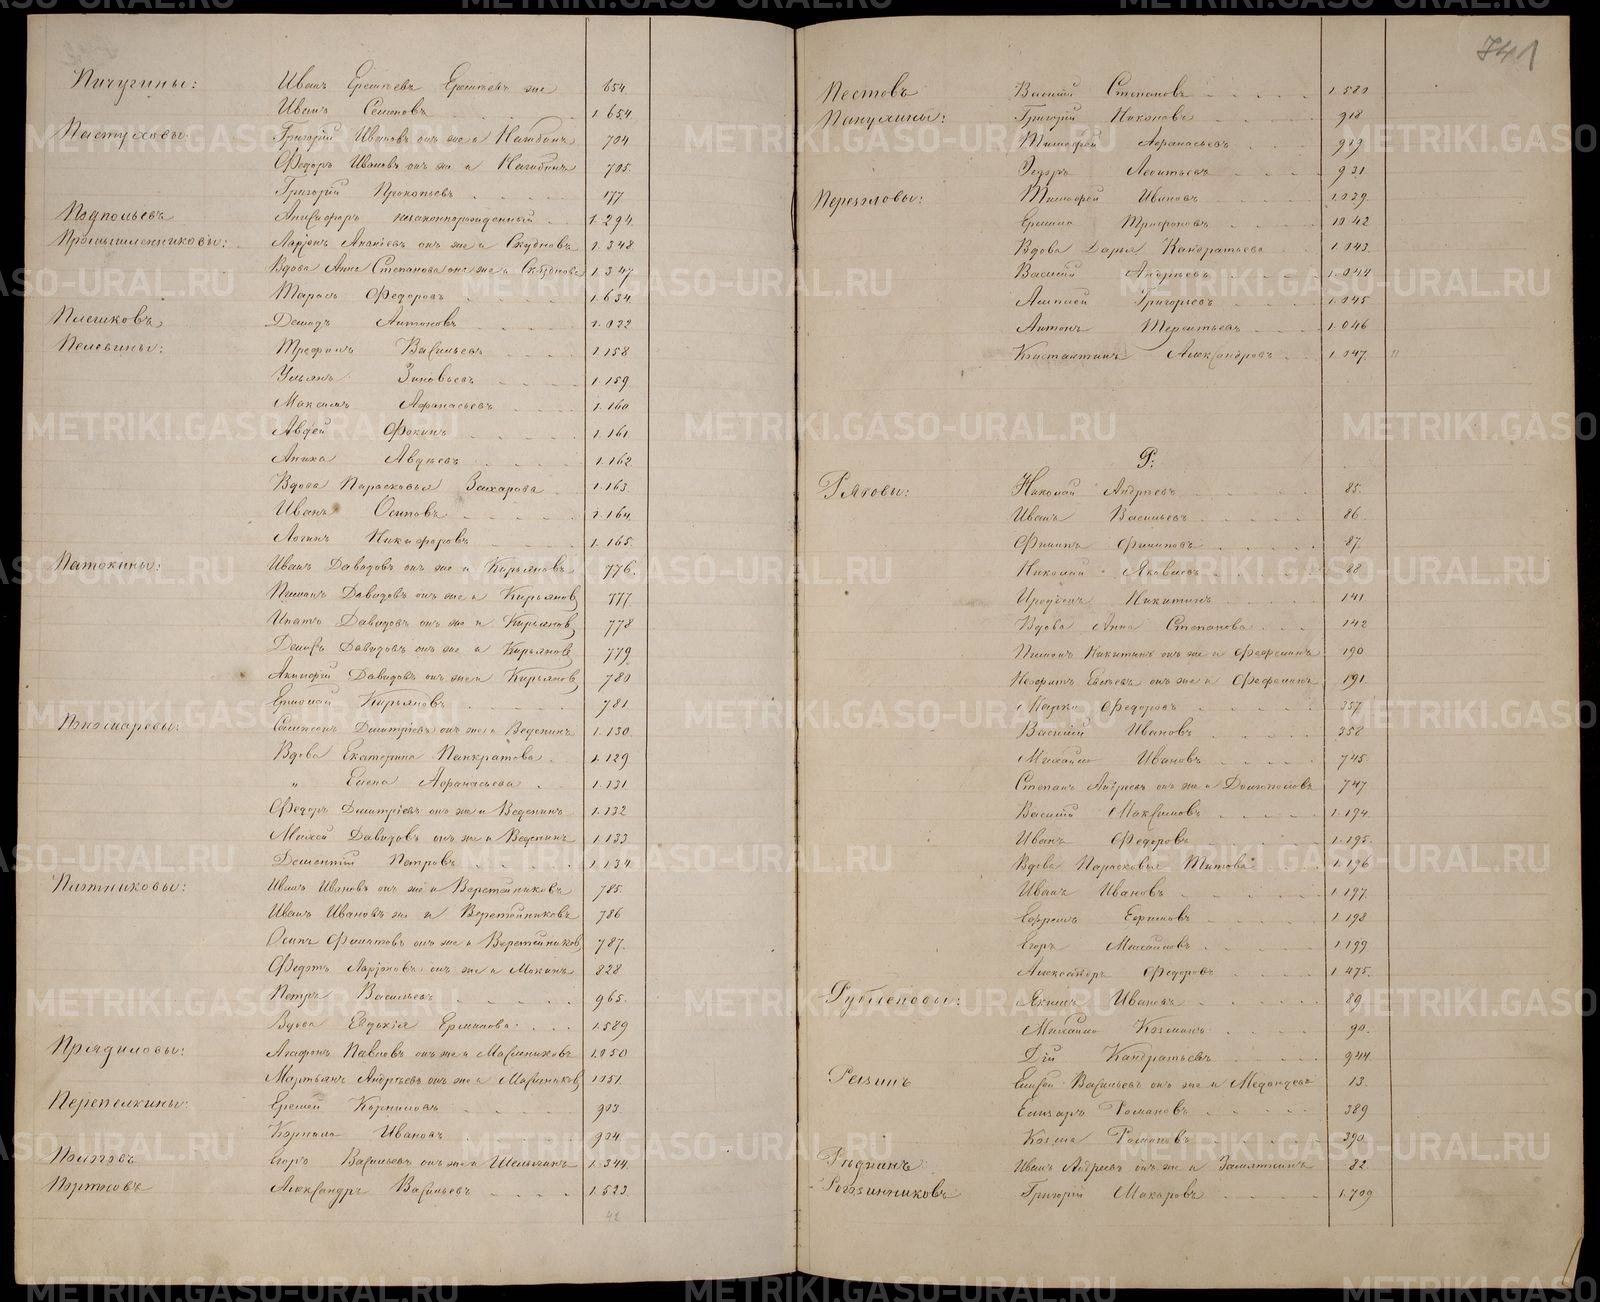 Пичугины: Иванъ Еремѣевъ Еремѣевъ же 654
Иванъ Семеновъ 1.654.
Пастуховы: Григорій Ивановъ онъ же и Нагибинъ 704
Федоръ Ивановъ онъ же и Нагибинъ 705.
Григорій Прокопьевъ 177
Подпольевъ Никифоръ незаконнорожденный 1.294.
Промышленниковы: Ларіонъ Ананіевъ онъ же и Скудновъ 1.348
Вдова Анна Степанова она же и Скуднова 1.347
Тарасъ Федоровъ 1.634
Плешковъ Демидъ Антоновъ 1.022
Пеловины: Трефанъ Васильевъ 1.158
Ульянъ Зиновьевъ 1.159
Максимъ Афанасьевъ 1.160
Авдей Фокинъ 1.161
Аника Авдѣевъ 1.162
Вдова Парасковья Захарова 1.163
Иванъ Осиповъ 1.164
Логинъ Никифоровъ 1.165
Патокины: Иванъ Давидовъ онъ же и Кирьяновъ 776.
Пименъ Давидовъ онъ же и Кирьянов 777
Ипатъ Давидовъ онъ же и Кирьянов 778
Давидовъ онъ же и Кирьянов 779
Давидовъ онъ же и Кирьянов 780
Ермолай Кирьяновъ 781
Пткомаревы: Самсонъ Дмитріевъ онъ же и Веденинъ 1.130
Вдова Екатерина Панкратова 1.129
" Елена Афанасьева 1.131
Федоръ Дмитріевъ онъ же и Веденинъ 1.132
Михей Давидовъ онъ же и Веденинъ 1.133
Дементій Петровъ 1.134
Пятниковы: Иванъ Ивановъ онъ же и Веретенниковъ 785
Иванъ Ивановъ же и Веретенниковъ 786
Осипъ Филатовъ онъ же и Веретенников 787.
Федотъ Ларіоновъ онъ же и Мокинъ 828
Петръ Васильевъ 965.
Вдова Евдокія Ермилова 1.589
Прядиловы: Агафонъ Павловъ онъ же и Масленниковъ 1.050
Мартьянъ Андрѣевъ онъ же и Масленников 1.051
Перепелкины: Еремей Корниловъ 903
Корнило Ивановъ 904
Полозовъ Егоръ Васильевъ онъ же и Шелыгинъ 1.344.
Портновъ Александръ Васильевъ 1.523
42
741
Пестовъ Василій Степановъ 1.580
Панулины: Григорій Никоновъ 918
Тимофей Афанасьевъ 919
Федоръ Леонтьевъ 931
Перезоловы: Тимофей Ивановъ 1.039
Еремѣй Трифоновъ 1042
Вдова Дарья Кандратьева 1.043
Василій Андрѣевъ 1.044
Алексѣй Григорьевъ 1.045
Антонъ Терентьевъ 1.046
Константинъ Александровъ 1.047
Р:
Ряковы: Николай Андрѣевъ 85.
Иванъ Васильевъ 86
Филипъ Филиповъ 87.
Николай Яковлевъ 88
Иродіонъ Никитинъ 141
Вдова Анна Степанова 142
Пименъ Никитинъ онъ же и Фефелинъ 190
Евсѣевъ онъ же и Фефелинъ 191
Марко Федоровъ 357
Василій Ивановъ 358
Михайло Ивановъ 745
Степанъ Андреевъ онъ же и Долгополовъ 747
Василій Максимовъ 1.194.
Иванъ Федоровъ 1.195.
Вдова Парасковья Титова 1.196
Иванъ Ивановъ 1.197.
Ефремъ Ефимовъ 1.198
Егоръ Михайловъ 1.199
Александръ Федоровъ 1.475.
Рублевовы: Якимъ Ивановъ 89
Михайло Козминъ 90.
Дій Кандратьевъ 944
Ремзинъ Елисей Васильевъ онъ же и Медвѣдевъ 13.
Елизаръ Романовъ 389
Козма Романовъ 390
Рѣдкинъ Иванъ Андреевъ онъ же и Замяткинъ 82
Рогозинниковъ Григорій Макаровъ 1.709